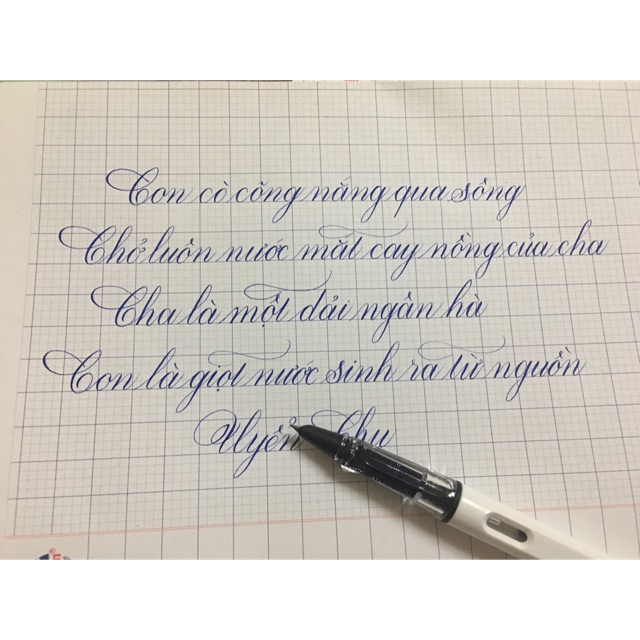 Con cò cõng nắng qua sông
Chở luôn nước mắt cay nồng của cha
Cha là một dải ngân hà
Con là giọt nước sinh ra từ nguồn
Uyên Chu